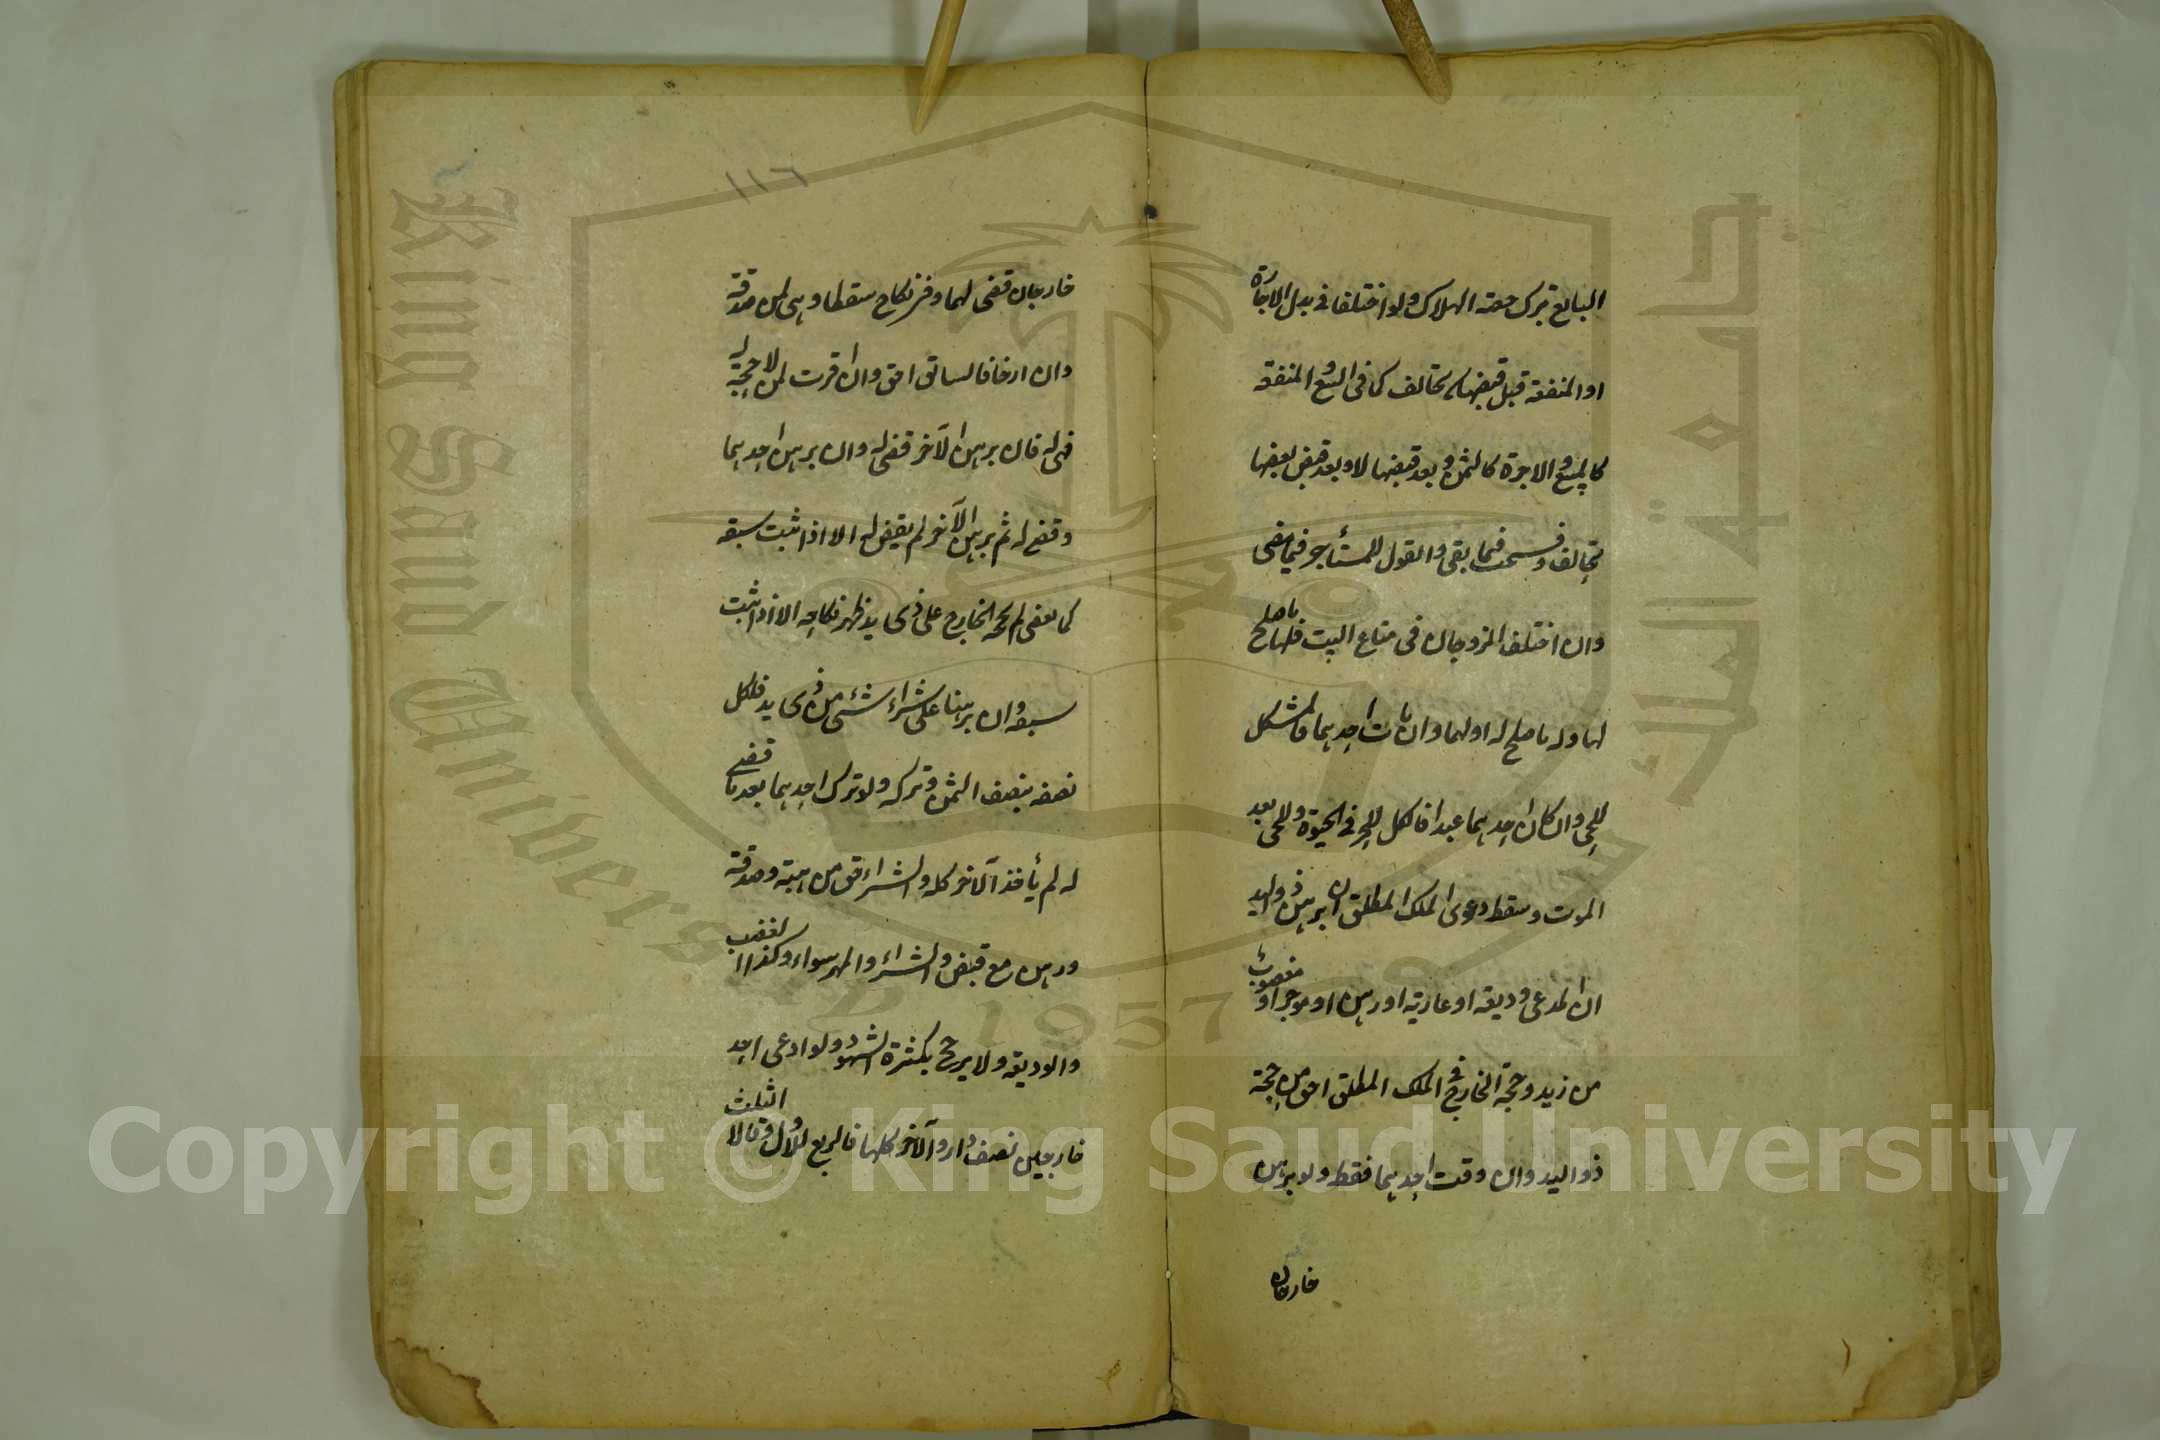 البايع بترك حصة الهلاك ولو اختلفا في بدل الاجارة
او المنفعة قبل قبضهما تحالف كما في البيع و المنفعة
كالمبيع و الاجرة كالثمن و بعد قبضها لا وبعد قبض بعضها
تحالف وفسخت فيما بقى والقول للمستأجر فيما مضى
وان اختلف الزوجان في متاع البيت فلها ما صلح
لها وله ما صلح له او لهما وان مات احدهما فالمشكل
للحي وان كان احدهما عبدا فالكل للحر في الحيوة و للحي بعد
الموت وسقط دعوى الملك المطلق ان برهن ذو اليد
ان المدعى وديعة او عارية او رهن او موجر او مغصوب
من زيد وحجة الخارج في الملك المطلق احق من حجة
ذو اليد وان وقت احدهما فقط ولو برهن
خارجان
١١٦
خارجان قضى لهما وفي نكاح سقطا وهي لمن صدقته
وان ارخا فالسابق احق وان اقرت لمن لا حجة له
فهى له فان برهن الآخر قضى له وان برهن احدهما
وقضى له ثم برهن الآخر لم يقض له الا اذا ثبت سبقه
كما لم حجة الخارج على ذى يد ظهر نكاحه الا اذا اثبت
سبقه وان برهنا على شراء شئ من ذى يد فلكل
نصفه بنصف الثمن و تركه ولو ترك احدهما بعد ما قضى
له لم يأخذ الآخر كله والشراء احق من هبة وصدقة
ورهن مع قبض والشراء و المهر سواء وكذا الغصب
والوديعة ولا يرجح بكثرة الشهود ولو ادعى احد
خارجين نصف دار و الآخر كلها فالربع للاول وقالا الثلث
King Saud University
جامعة الملك سعود
1957
Copyright © King Saud University